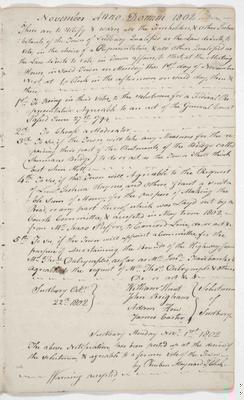 November Anno Domini 1802
These are to notify & warn all the Freeholders & other Inhabitants of the Town of Sudbury Qualified as the law directs, to
vote in the choice of a Representative, & all others Qualified as
the law directs to vote in Town affairs, to meet at the Meeting
House in said Town on Monday the first day of November
Next at o'Clock in the afternoon on said day, then &
there
1st To bring in their votes to the Selectmen for a Federal
Representative Agreeable to an act of the General Court
Passed June
2ly To Choose a Moderator
3ly To see if the Town will take any Measures for the re
pairing their part of the Abutments of the Bridge called
Shermans Bridge, or to do or act as the Town shall think
best when Met
4ly To see if the Town will Agreeable to the Request
of Joshua Haynes and others, grant a suita
ble Sum of Money for the purpose of Making the
Road or any part thereof which was Laid out by a
Courts Committee & accepted in May term 1802
from Mr. Isaac to Concord Line, or act &c
5ly To see if the Town will appoint a Committee for the
purpose of ascertaining the bounds of the Highway from
Mr. Thos. Dalrymples as far as Mr.
agreeable to the request of Mr. Thos. Dalrymple & others
Do or act &c
Sudbury Octr.
22d. 1802
William Hunt
John Brigham
Adam How
James Carter
Selectmen
of
Sudbury
Sudbury Monday Novr. 1st 1802
The above Notification has been posted up at the desire of
the Selectmen, & agreeable to a former vote of the Town
by Reuben Haynes
Warning accepted